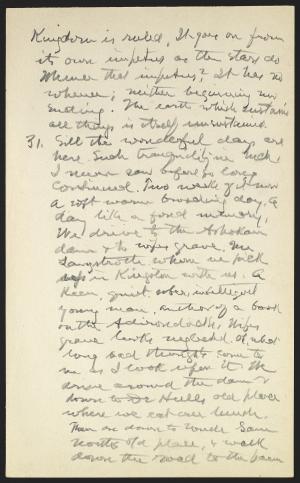 Kingdom is ruled. It goes on from
its own impetus as the stars do
Whence that impetus? It has no
whence; neither beginning nor
ending. The earth which sustains
all things is itself unsustained.
31. Still the wonderful days are
here. Such tranquility in
I never saw before so long
continued. Two weeks of it now
A soft warm brooding day, a
day like a fond memory,
We drive to the Ashokan
dam & to wifes grave. Mr
Longstreth whom we pick
up in Kingston with us. A
keen, quiet, sober, intelligent
young man, author of a book
on the Adirondacks. Wifes
grave looks neglected. O, what
long sad thoughts come to
me as I look upon it. We
drive around the dam &
down to Hulls old place
where we eat our lunch.
Then on down to Uncle Sam
old place, & walk
down the road to the barn